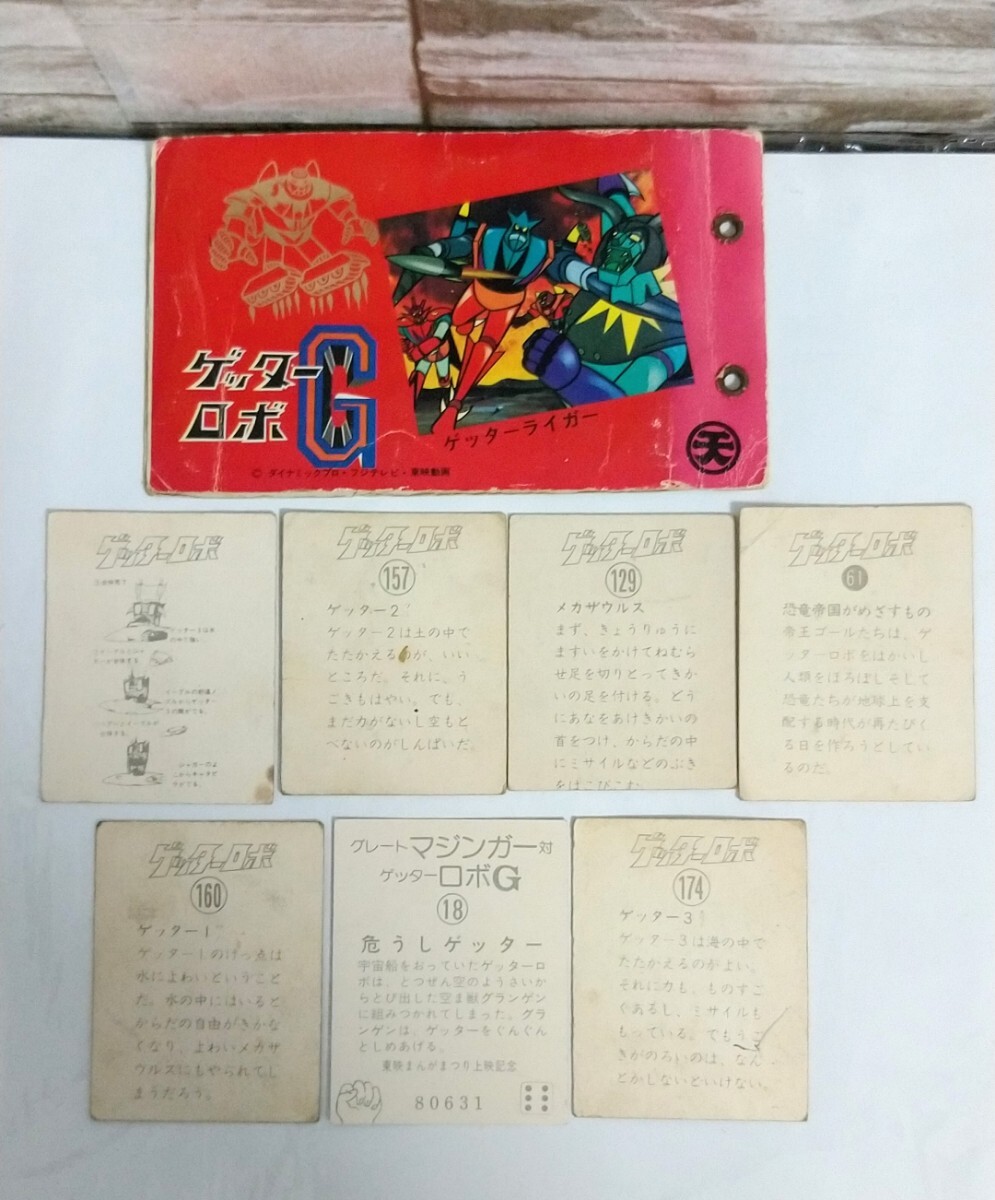 ゲッター
ロボG
ゲッターライガー
天
© ダイナミックプロ・フジテレビ・東映動画
ゲッターロボ
ゲッターロボ
157
ゲッター2
ゲッター2は土の中で
たたかえるのが、いい
ところだ。それに、う
ごきもはやい。でも、
まだ力がないし空もと
べないのがしんぱいだ。
ゲッターロボ
129
メカザウルス
まず、きょうりゅうに
ますいをかけてねむら
せ足を切りとってきか
いの足を付ける。どう
にあなをあけきかいの
首をつけ、からだの中
にミサイルなどのぶき
をはこびこむ
ゲッターロボ
61
恐竜帝国がめざすもの
帝王ゴールたちは、ゲ
ッターロボをはかいし
人類をほろぼしそして
恐竜たちが地球上を支
配する時代が再たびく
る日を作ろうとしてい
るのだ。
ゲッターロボ
160
ゲッター1
ゲッター1のけっ点は
水によわいということ
だ。水の中にはいると
からだの自由がきかな
くなり、よわいメカザ
ウルスにもやられてし
まうだろう。
グレートマジンガー対
ゲッターロボG
18
危うしゲッター
宇宙船をおっていたゲッターロ
ボは、とつぜん空のようさいか
らとび出した空ま獣グランゲン
に組みつかれてしまった。グラ
ンゲンは、ゲッターをぐんぐん
としめあげる。
東映まんがまつり上映記念
80631
ゲッターロボ
174
ゲッター3
ゲッター3は海の中で
たたかえるのがよい。
それに力も、ものすご
くあるし、ミサイルも
もっている。でもうご
きがのろいのは、なん
とかしないといけない。